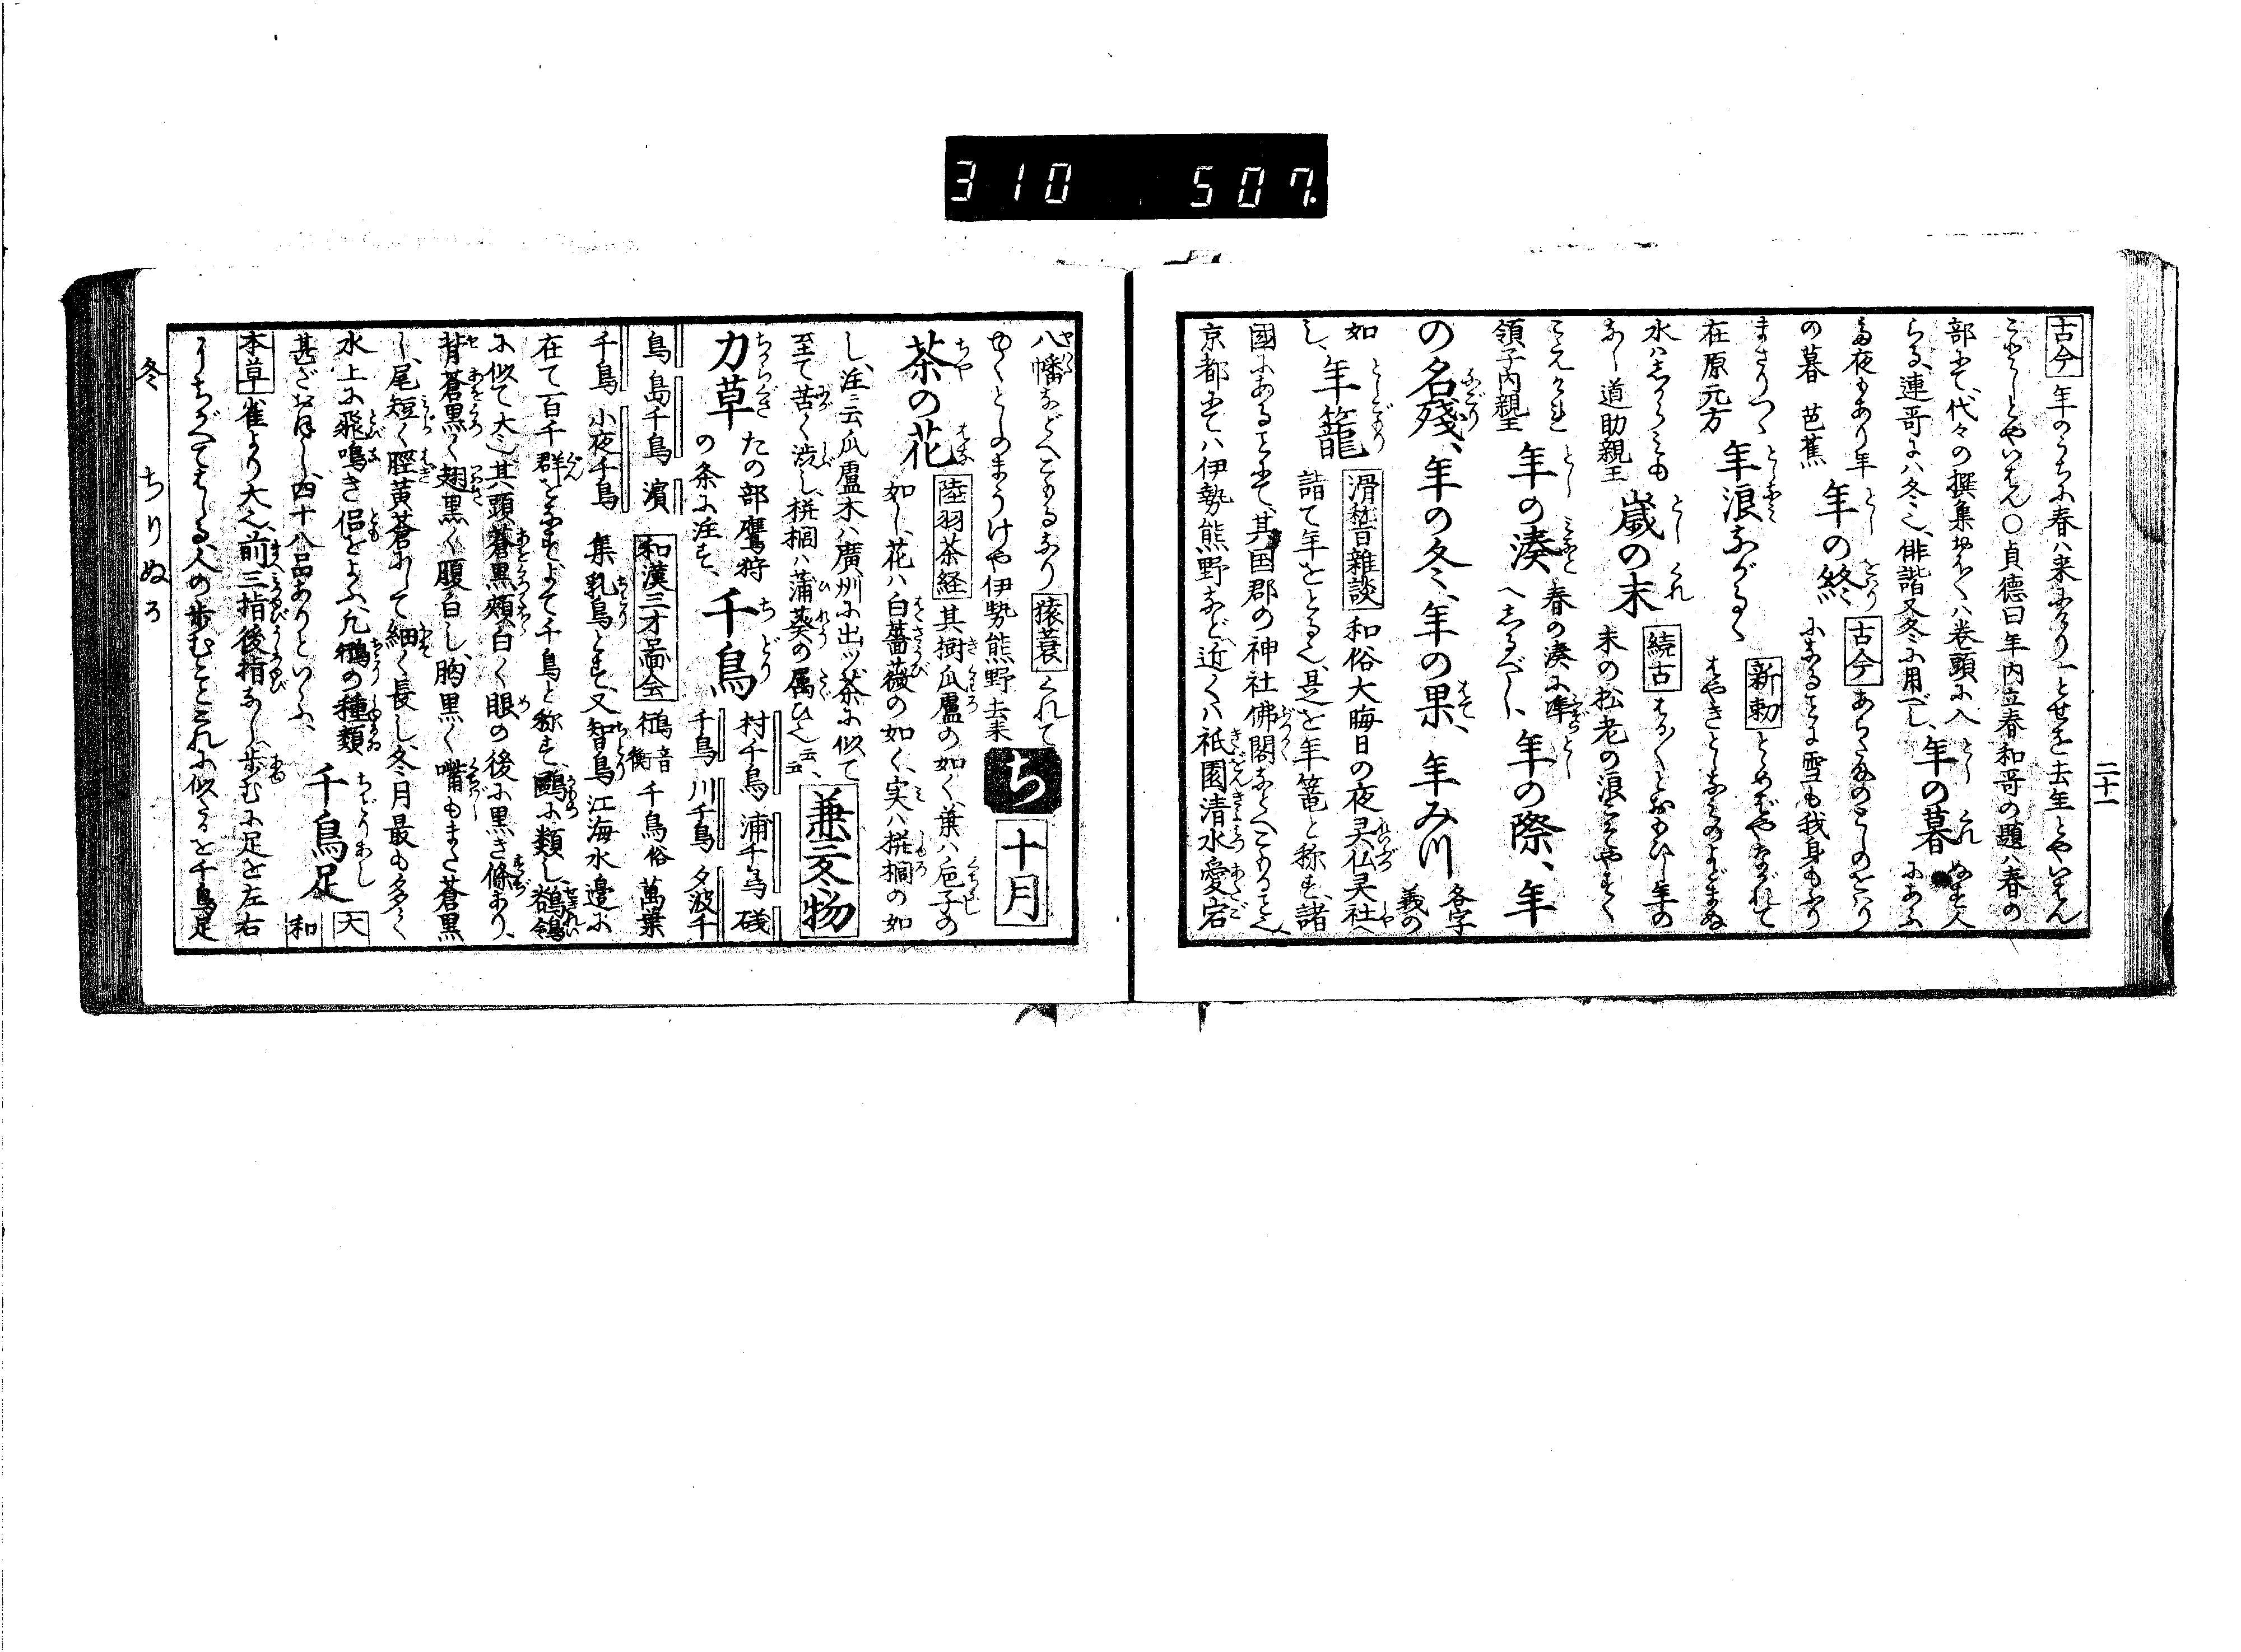 310 507
二十一
古今 年のうちに春ハ来にけり一とせを去年とやいはん
ことしとやいはん〇貞徳曰年内立春和哥の題ハ春の
部にて、代々の撰集おほくハ巻頭に入
らる、連哥にハ冬也、俳諧又冬に用べし、年の暮
夜もあり年の暮 芭蕉
年の終 古今 あらたまのとしのをはり
になることに雪も我身もふり
まさりつゝ 在原元方
年浪ながるゝ 新勅 とめばやながれて
はやきとしなみのよどまぬ
水ハしがらみも
なし 道助親王
歳の末 続古
末の松老の浪こそやすく
こえけれ
領子内親王
年の湊 春の湊に準
へしるべし、年の際、年
の名残、年の冬、年の果、年み川 各字義の
如し、
年籠 滑稽雑談 和俗大晦日の夜灵仏灵社へ
詣て年をとる也、是を年篭と称す、諸
國にあることにて、其国郡の神社佛閣などへこもること也、
京都にてハ伊勢熊野など、近くハ祇園清水愛宕
八幡などへこもるなり 猿蓑 くれて
ゆくとしのまうけや伊勢熊野 去来
ち 十月
茶の花 陸羽茶経 其樹瓜盧の如く、葉ハ巵子の
如し、花ハ白薔薇の如く、実ハ栟櫚の如
し、注云瓜盧木ハ廣州に出ツ、茶に似て
至て苦く渋し、栟櫚ハ蒲葵の属ひ也云云、
兼三冬物
力草 たの部鷹狩
の条に注す、
千鳥 村千鳥 浦千鳥 磯
千鳥 川千鳥 夕波千
鳥 島千鳥 濱
千鳥 小夜千鳥
和漢三才圖会 鵆 音衡 千鳥俗 萬葉
集乳鳥とす、又智鳥江海水邉に
在て一百千群をなす、よて千鳥と称す、鷗に類し、鶺鴒
に似て大也、其頭蒼黒、頬白く、眼の後に黒き條あり、
背蒼黒く、翅黒く、腹白し、胸黒く、嘴もまた蒼黒
し、尾短く、脛黄蒼にして細く長し、冬月最も多く
水上に飛鳴き侶をよぶ、凡鵆の種類
甚だおほし、四十八品ありといふ、
千鳥足 大和
本草 雀より大也、前三指後指なし、歩むに足を左右
にうちがへてはしる、人の歩むことこれに似たるを千鳥足
冬 ちりぬる